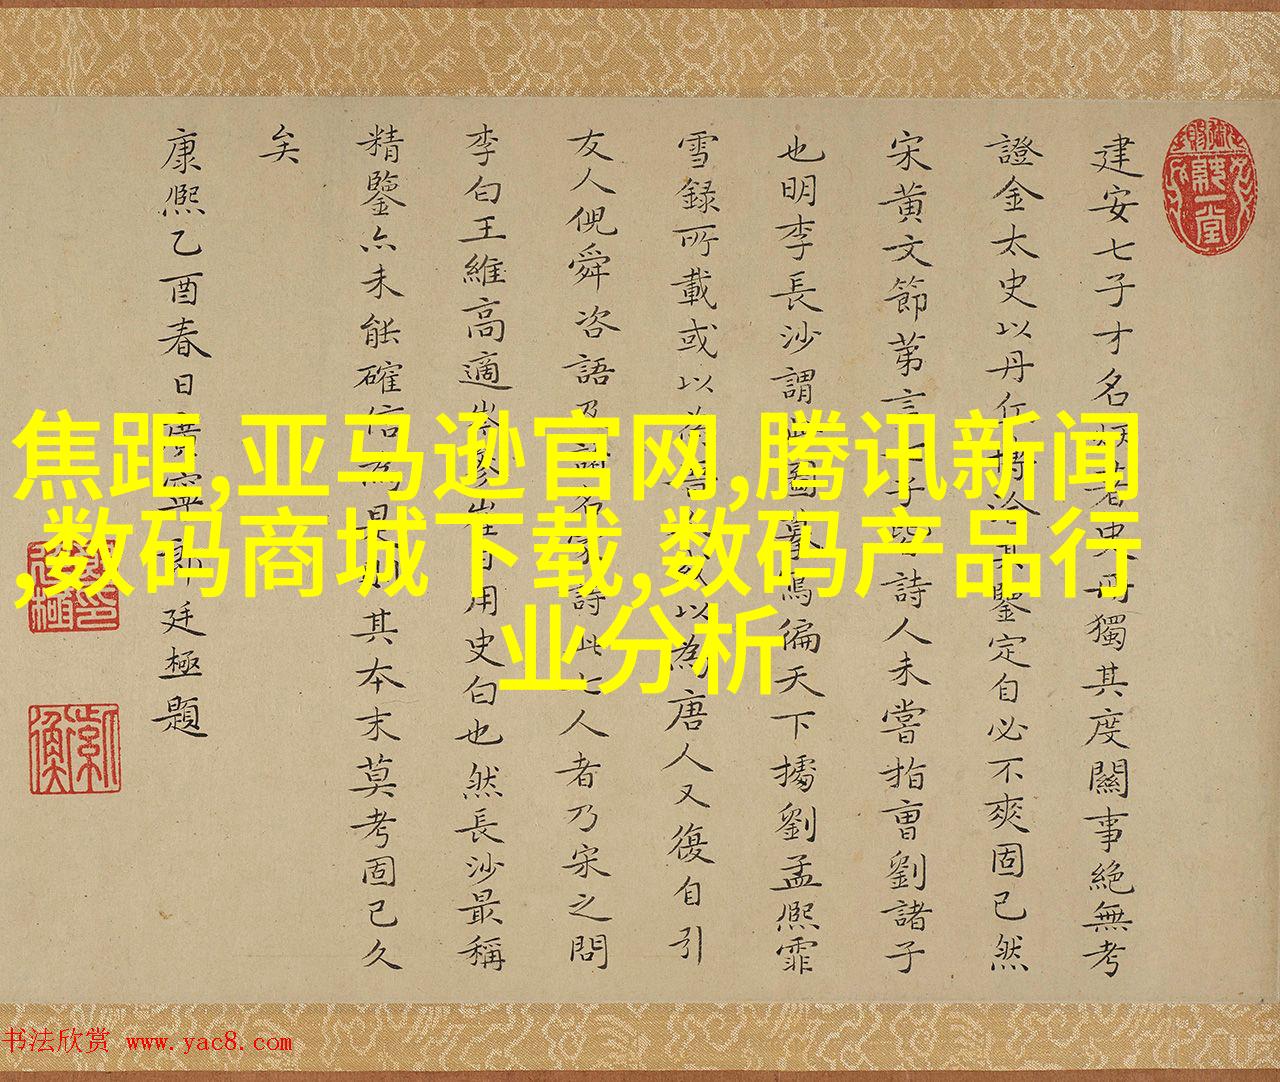 建安七子才名
獨其度關事絕無考
證金太史以丹
鑒定自必不爽固已然
宋黃文節苐言
詩人未嘗指曹劉諸子
也明李長沙謂
偏天下攄劉孟熙霏
雪錄所載或以
以為唐人又復自引
友人倪舜咨語
詩此七人者乃宋之問
李白王維高適岑參崔
用史白也然長沙最稱
精鑒亦未能確信
其本末莫考固已久
矣
康熙乙酉春日廣寧
廷極題
焦距,亚马逊官网,腾讯新闻
,数码商城下载,数码产品行
业分析
书法欣赏 www.yac8.com